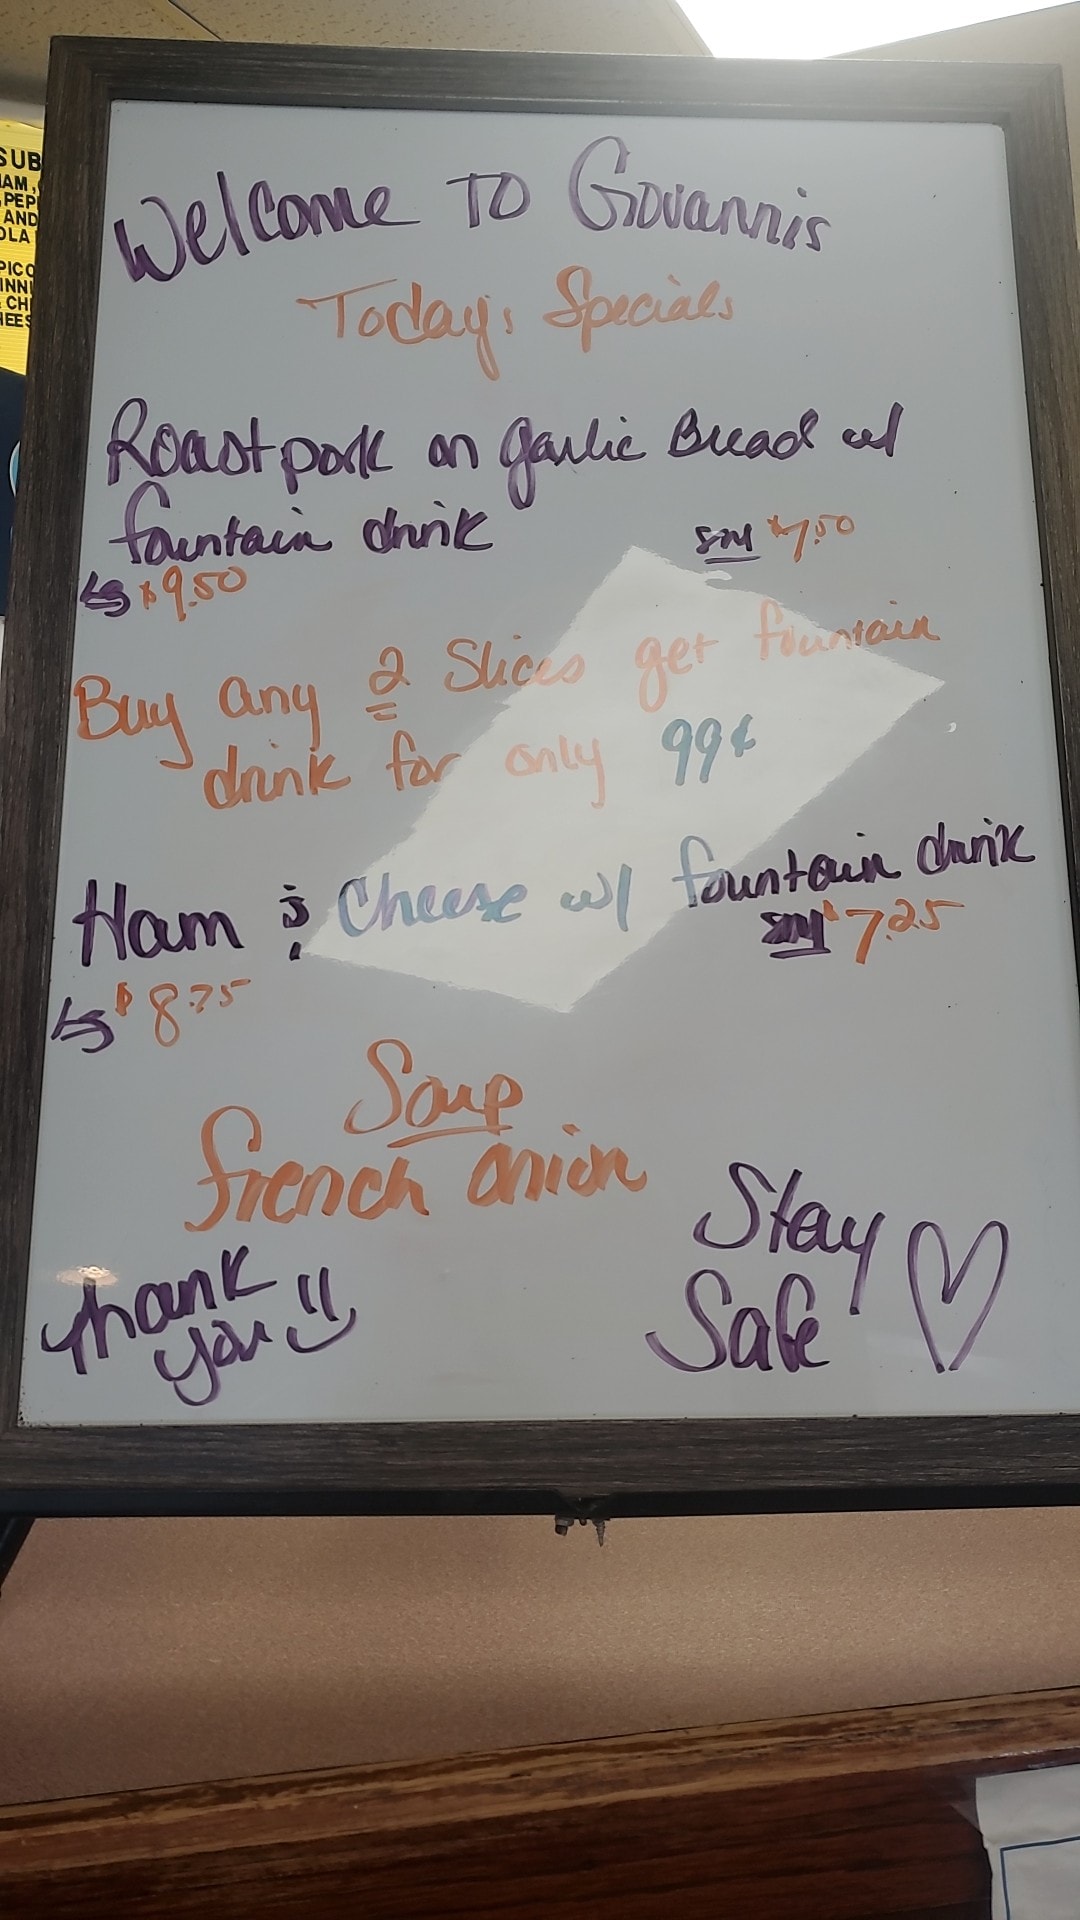 SUB
HAM,
PEP
AND
OLA
Welcome TO Giovannis
Today's Specials
Roast pork on garlic Bread w/
fountain drink sml $7.50
Lg $9.50
Buy any 2 Slices get fountain
drink for only 99¢
Ham & Cheese w/ fountain drink
sml $7.25
Lg $8.75
Soup
french onion
Thank
you
Stay
Safe